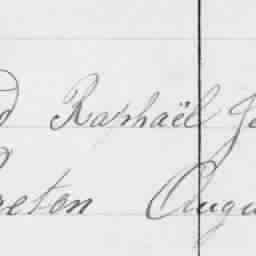 d Raphaël Je
eton Augu